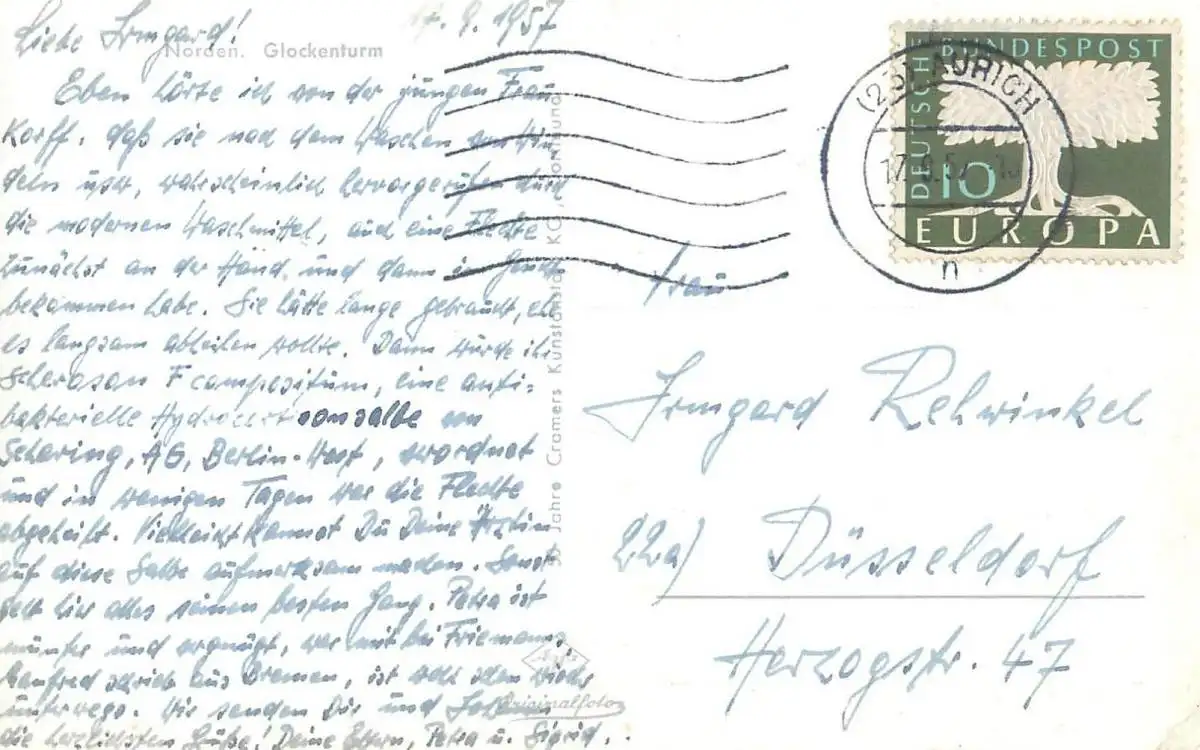 17. 9. 1957
Liebe Irmgard!
Norden. Glockenturm
Eben hörte ich von der jungen Frau
Korff, daß sie nach dem Waschen von Win
deln usw, wahrscheinlich hervorgerufen durch
die modernen Waschmittel, auch eine Flechte
zunächst an der Hand, und dann im Gesicht
bekommen habe. Sie hätte lange gebraucht, ehe
es langsam abheilen wollte. Dann wurde ihr
Scheroson F compositum, eine anti-
bakterielle Hydrocortisonsalbe von
Schering, AG, Berlin-West, verordnet
und in wenigen Tagen war die Flechte
abgeheilt. Vielleicht kannst Du Deine Ärztin
auf diese Salbe aufmerksam machen. Sonst
geht hier alles seinen besten Gang. Petra ist
munter und vergnügt, war mit bei Friemanns,
Manfred schrieb aus Bremen, ist wohl schon wieder
unterwegs. Wir senden Dir und
die herzlichsten Grüße! Deine Eltern, Petra u. Sigrid.
Jahre Cramers Kunstanstalt KG, Dortmund
Originalfoto
DEUTSCHE BUNDESPOST
10
EUROPA
(23) AURICH
17.9.57
n
Frau
Irmgard Rehwinkel
22a) Düsseldorf
Herzogstr. 47